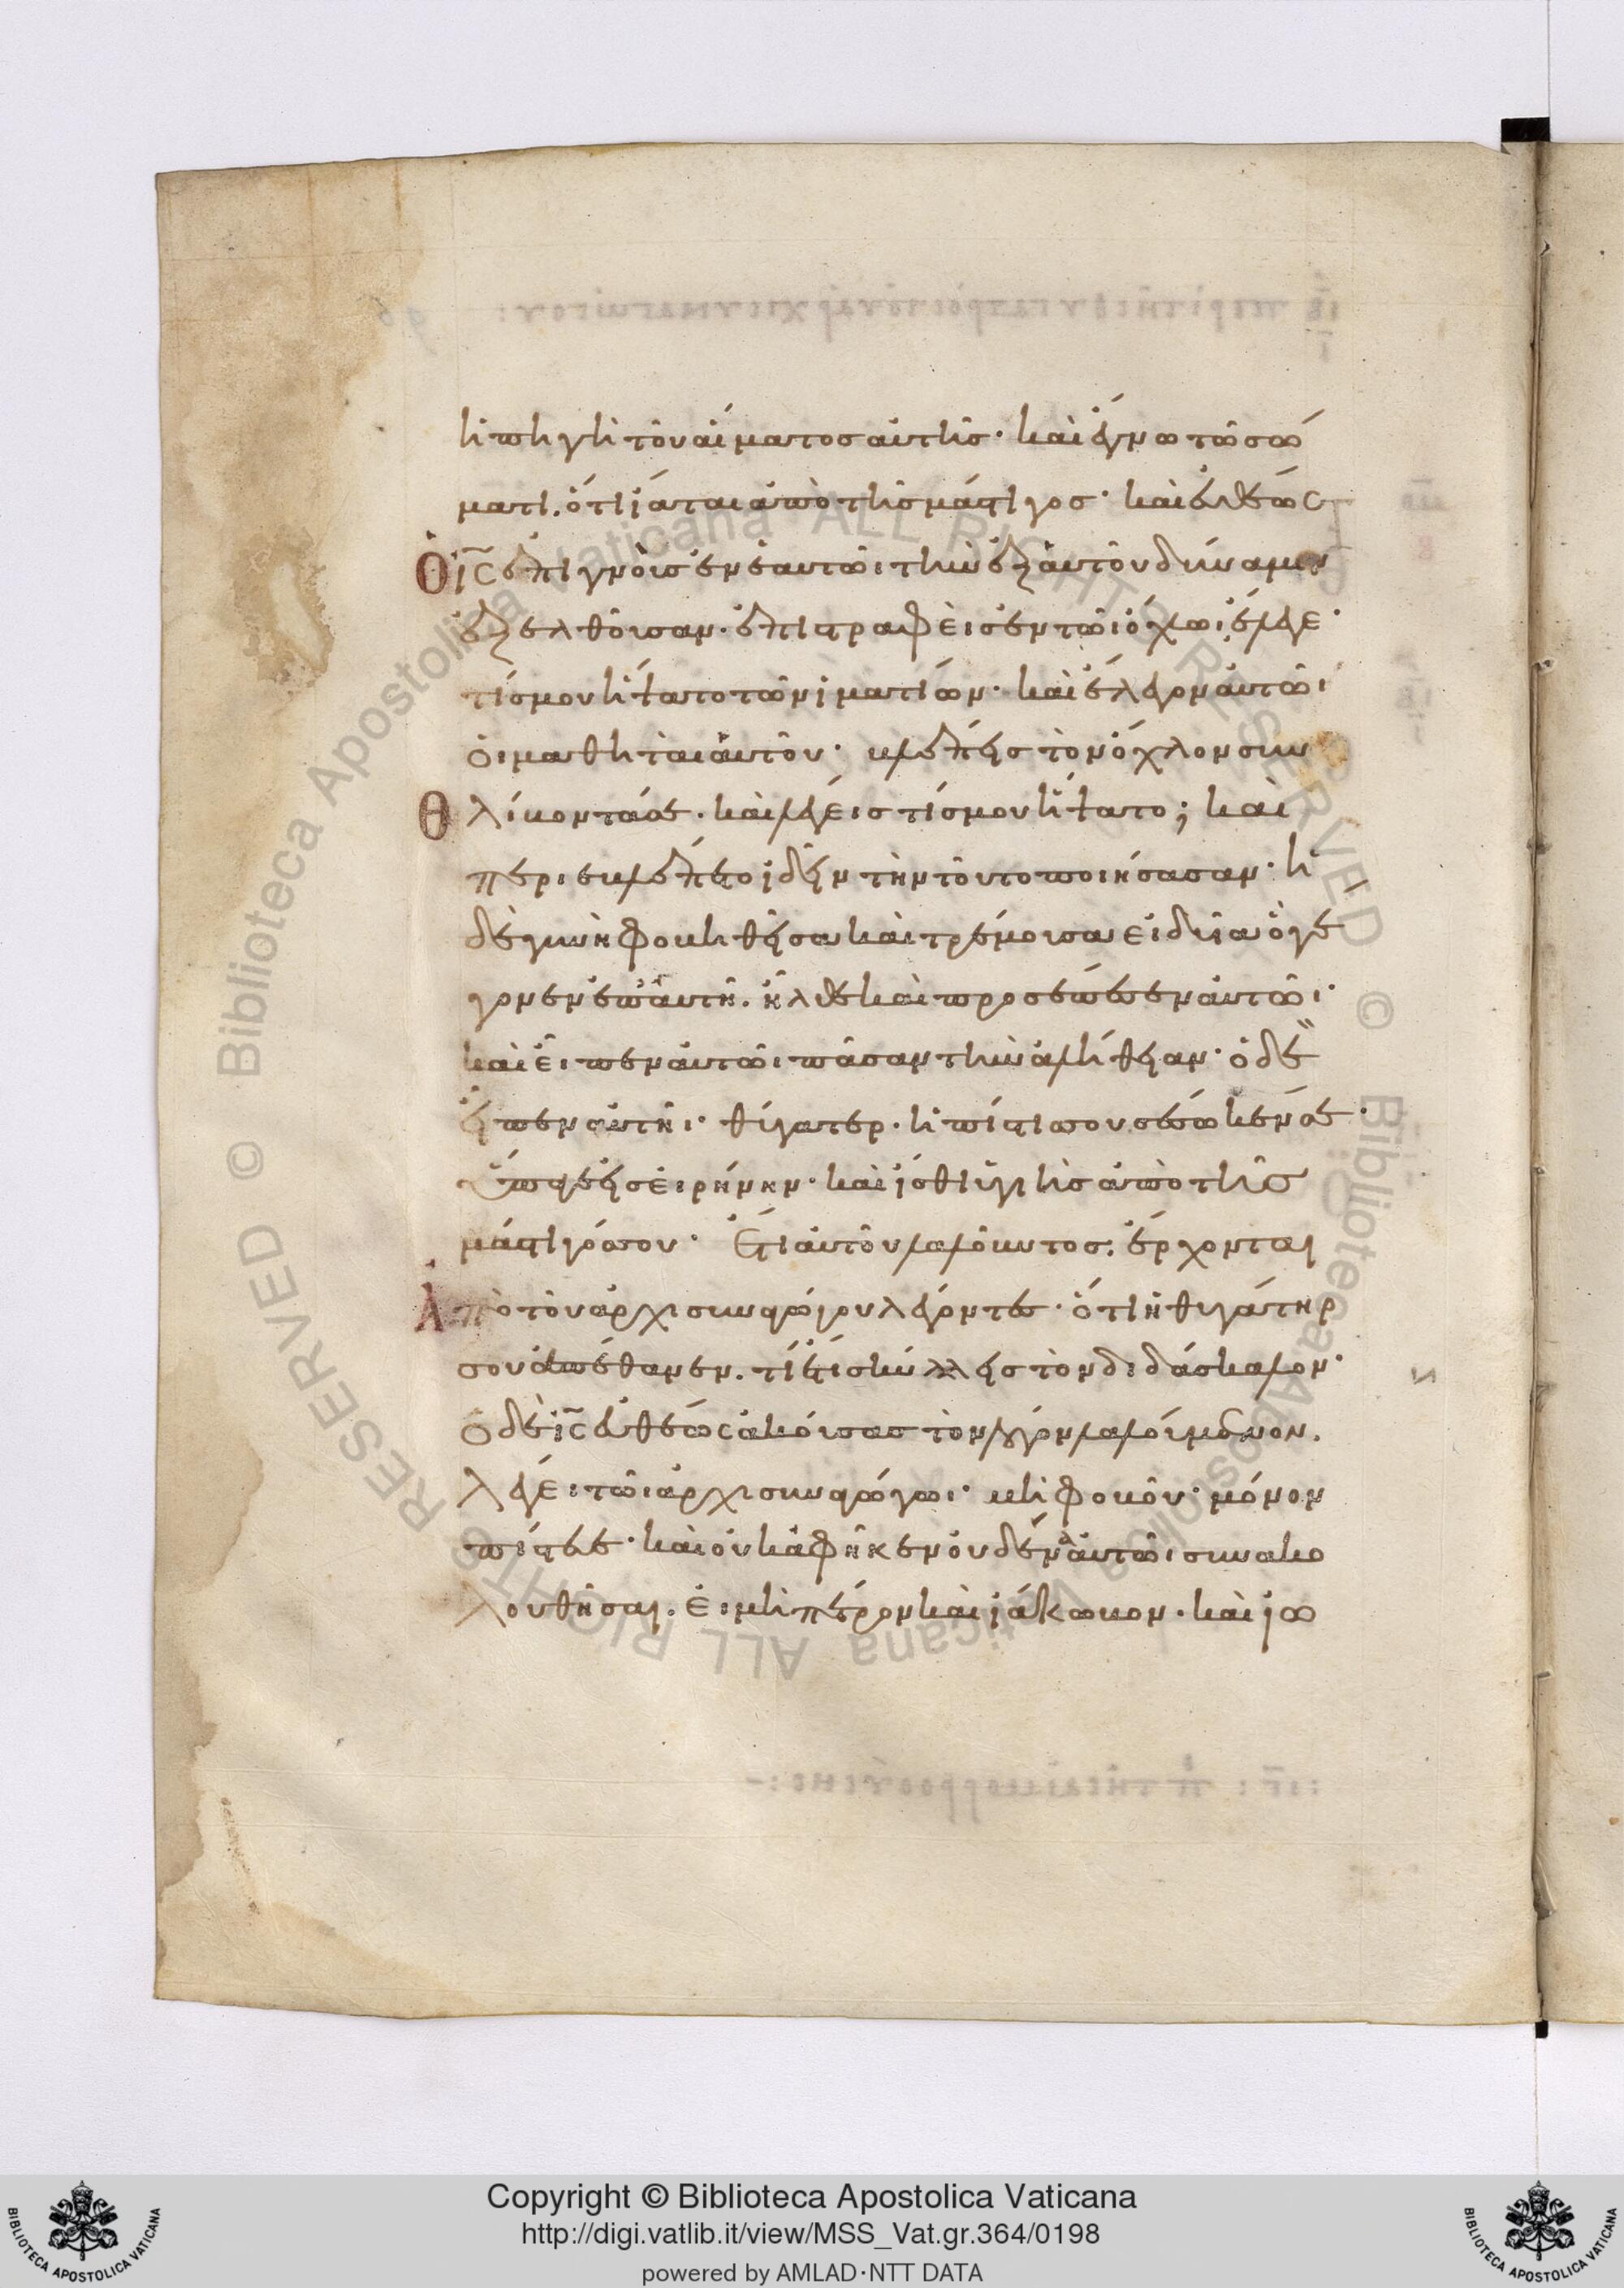 ἡ πηγὴ τοῦ αἵματος αὐτῆς· καὶ ἔγνω τῶ σώ
ματι. ὅτι ἴαται ἀπὸ τῆς μάστιγος· καὶ εὐθέως
ὁ ις ἐπιγνοὺς ἐν ἑαυτῶι τὴν ἐξ αὐτοῦ δύναμιν
ἐξελθοῦσαν. ἐπιστραφεὶς ἐν τῶι ὄχλωι, ἔλεγε·
τίς μου ἥψατο τῶν ἱματίων· καὶ ἔλεγον αὐτῶι
οἱ μαθηταὶ αὐτοῦ· βλέπεις τὸν ὄχλον συν
θλίβοντά σε. καὶ λέγεις τίς μου ἥψατο; καὶ
περιεβλέπετο ἰδεῖν τὴν τοῦτο ποιήσασαν· ἡ
δὲ γυνὴ φοβηθεῖσα καὶ τρέμουσα εἰδυῖα ὃ γέ
γονεν ἐπ αὐτῆ. ἦλθε καὶ προσέπεσεν αὐτῶι·
καὶ εἶπεν αὐτῶι πᾶσαν τὴν ἀλήθειαν· ὁ δὲ
εἶπεν αὐτῆι· θύγατερ. ἡ πίστις σου σέσωκέν σε·
ὕπαγε εἰς εἰρήνην· καὶ ἴσθι ὑγιὴς ἀπὸ τῆς
μάστιγός σου· Ἔτι αὐτοῦ λαλοῦντος. ἔρχονται
ἀπὸ τοῦ ἀρχισυναγώγου λέγοντες· ὅτι ἡ θυγάτηρ
σου ἀπέθανεν. τί ἔτι σκύλλεις τὸν διδάσκαλον·
ὁ δὲ ις εὐθέως ἀκούσας τὸν λόγον λαλούμενον.
λέγει τῶι ἀρχισυναγώγωι· μὴ φοβοῦ· μόνον
πίστευε· καὶ οὐκ ἀφῆκεν οὐδένα αὐτῶι συνακο
λουθῆσαι. εἰ μὴ πέτρον καὶ ἰάκωβον. καὶ ἰω
Copyright © Biblioteca Apostolica Vaticana
http://digi.vatlib.it/view/MSS_Vat.gr.364/0198
powered by AMLAD·NTT DATA